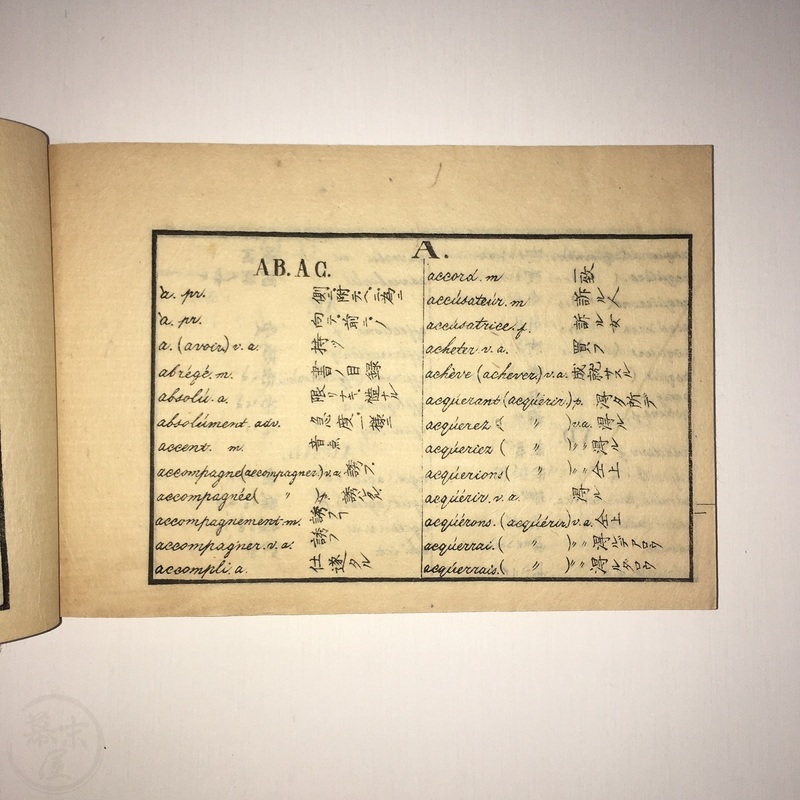 A.
AB. AC.
à. pr. 側ニ附テヘニ為ニ
à. pr. 向テ前ニノ
a. (avoir) v. a. 持ツ
abrégé. m. 書ノ目録
absolú. a. 限リナキ慥ナル
absolúment. adv. 急度一樣ニ
accent. m. 音点
accompagne (accompagner) v.a. 誘フ
accompagnée ( 〃 ) 誘ハレタル
accompagnement. m. 誘フヿ
accompagner. v. a. 誘フ
accompli. a. 仕遂タル
accord. m 一致
accúsateur. m 訴ル人
accúsatrice. f. 訴ル女
acheter v. a. 買フ
achève (achever.) v. a. 成就サスル
acqúerant (acqúérir.) p. 得タ所デ
acqúerez ( 〃 ) v.a. 得ル
acqúeriez ( 〃 ) 〃 〃 得ル
acqúerions ( 〃 ) 〃 〃 仝上
acqúérir. v. a. 得ル
acqúérons. (acqúérir) v. a. 仝上
acqúerrai. ( 〃 ) 〃 〃 得ルデアロウ
acqúerrais. ( 〃 ) 〃 〃 得ルタロウ
幕末屋